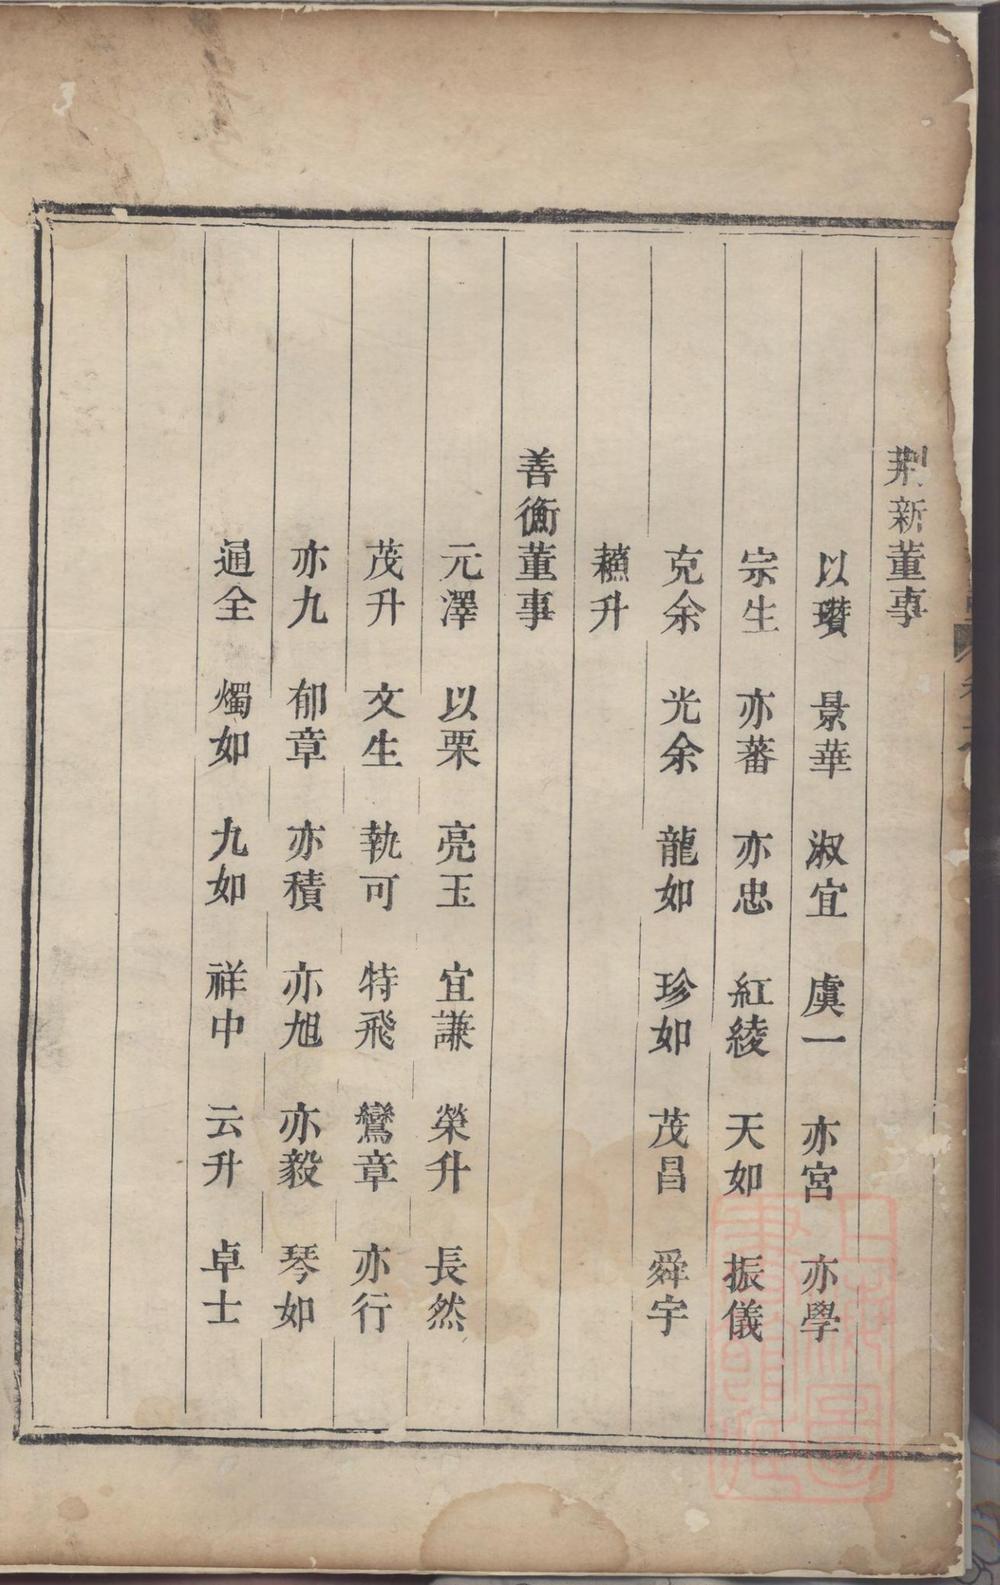 荆新董事
以瓚 景華 淑宜 虞一 亦宮 亦學
宗生 亦蕃 亦忠 紅綾 天如 振儀
克余 光余 龍如 珍如 茂昌 舜宇
蘓升
善衡董事
元澤 以栗 亮玉 宜謙 榮升 長然
茂升 文生 執可 特飛 鸞章 亦行
亦九 郁章 亦積 亦旭 亦毅 琴如
通全 燭如 九如 祥中 云升 卓士